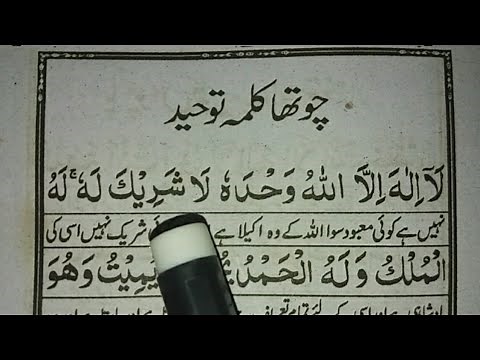 چوتھا کلمہ توحید
لَآ اِلٰهَ اِلَّا اللهُ وَحْدَهٗ لَا شَرِيْكَ لَهٗ ۚ لَهُ
نہیں ہے کوئی معبود سوا اللہ کے وہ اکیلا ہے شریک نہیں اسی کی
الْمُلْكُ وَ لَهُ الْحَمْدُ يُمِيْتُ وَ هُوَ